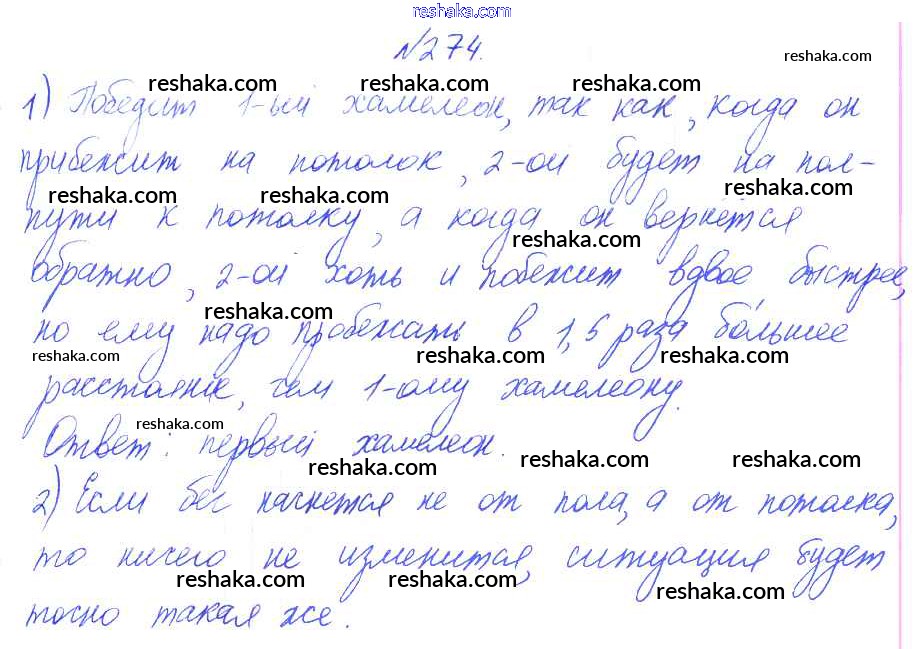 reshaka.com
№274.
reshaka.com
reshaka.com
reshaka.com
1) Победит 1-ый хамелеон, так как, когда он
прибежит на потолок, 2-ой будет на пол-
reshaka.com
reshaka.com
reshaka.com
пути к потолку, а когда он вернётся
reshaka.com
обратно, 2-ой хоть и побежит вдвое быстрее,
reshaka.com
но ему надо пробежать в 1,5 раза бо́льшее
reshaka.com
reshaka.com
reshaka.com
расстояние, чем 1-ому хамелеону.
reshaka.com
Ответ: первый хамелеон.
reshaka.com
reshaka.com
reshaka.com
2) Если бег начнется не от пола, а от потолка,
то ничего не изменится, ситуация будет
reshaka.com
reshaka.com
reshaka.com
точно такая же.